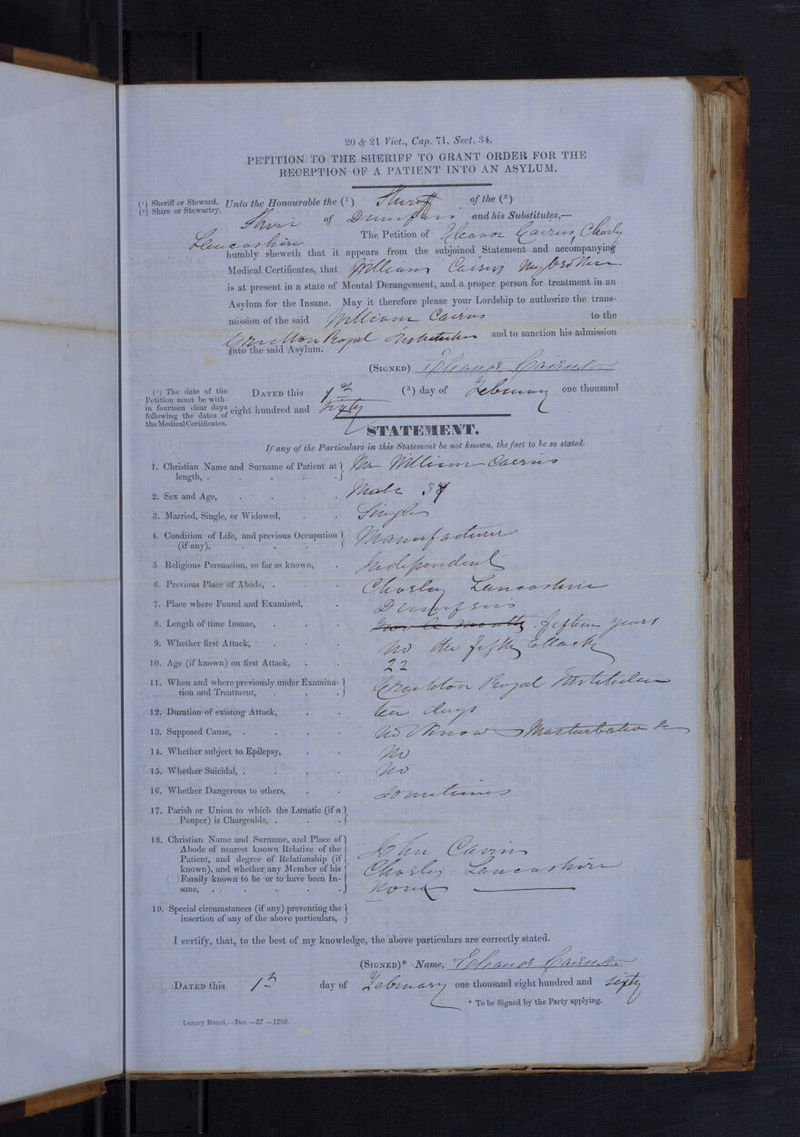 20 & 21 Vict., Cap. 71, Sect. 34.
PETITION TO THE SHERIFF TO GRANT ORDER FOR THE
RECEPTION OF A PATIENT INTO AN ASYLUM.
(¹) Sheriff or Steward.
(²) Shire or Stewartry.
Unto the Honourable the (¹) Sheriff of the (²)
Shire of Dumfries and his Substitutes,—
The Petition of Eleanor Cairns, Chorley
Lancashire
humbly sheweth that it appears from the subjoined Statement and accompanying
Medical Certificates, that William Cairns my brother
is at present in a state of Mental Derangement, and a proper person for treatment in an
Asylum for the Insane. May it therefore please your Lordship to authorize the trans-
mission of the said William Cairns to the
Crichton Royal Institution and to sanction his admission
into the said Asylum.
(SIGNED) Eleanor Cairns
(³) The date of the
Petition must be with-
in fourteen clear days
following the dates of
the Medical Certificates.
DATED this 1st (³) day of February one thousand
eight hundred and Sixty
STATEMENT.
If any of the Particulars in this Statement be not known, the fact to be so stated.
1. Christian Name and Surname of Patient at length, . Mr William Cairns
2. Sex and Age, Male 37
3. Married, Single, or Widowed, Single
4. Condition of Life, and previous Occupation (if any), Manufacturer
5 Religious Persuasion, so far as known, Independent
6. Previous Place of Abode, . Chorley Lancashire
7. Place where Found and Examined, Dumfries
8. Length of time Insane, fifteen years
9. Whether first Attack, no the fifth attack
10. Age (if known) on first Attack, 22
11. When and where previously under Examina-
tion and Treatment, Crichton Royal Institution
12. Duration of existing Attack, ten days
13. Supposed Cause, . Masturbatio
14. Whether subject to Epilepsy, No
15. Whether Suicidal, . No
16. Whether Dangerous to others, sometimes
17. Parish or Union to which the Lunatic (if a
Pauper) is Chargeable, .
18. Christian Name and Surname, and Place of
Abode of nearest known Relative of the
Patient, and degree of Relationship (if
known), and whether any Member of his
Family known to be or to have been In-
sane, . John Cairns
Chorley Lancashire
None
19. Special circumstances (if any) preventing the
insertion of any of the above particulars,
I certify, that, to the best of my knowledge, the above particulars are correctly stated.
(SIGNED)* Name, Eleanor Cairns
DATED this 1st day of February one thousand eight hundred and sixty
* To be Signed by the Party applying.
Lunacy Board,—Dec.—57.—1200.